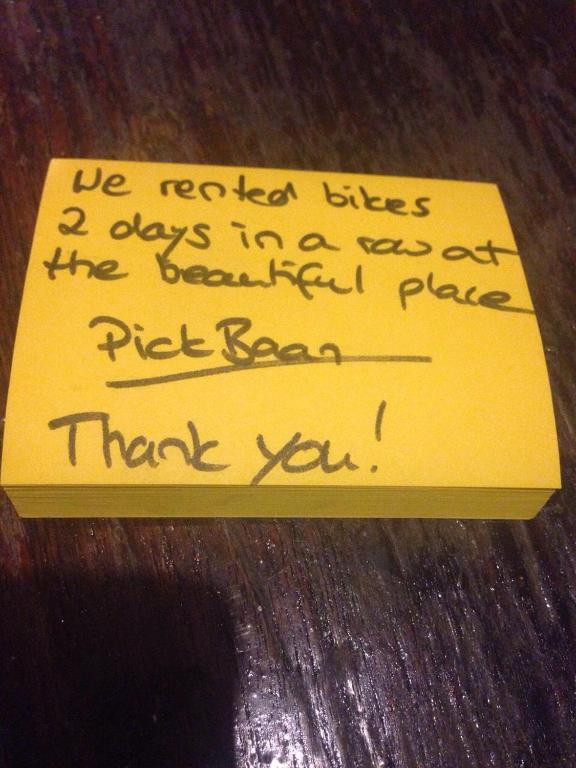 We rented bikes
2 days in a row at
the beautiful place
Pick Baan
Thank you!